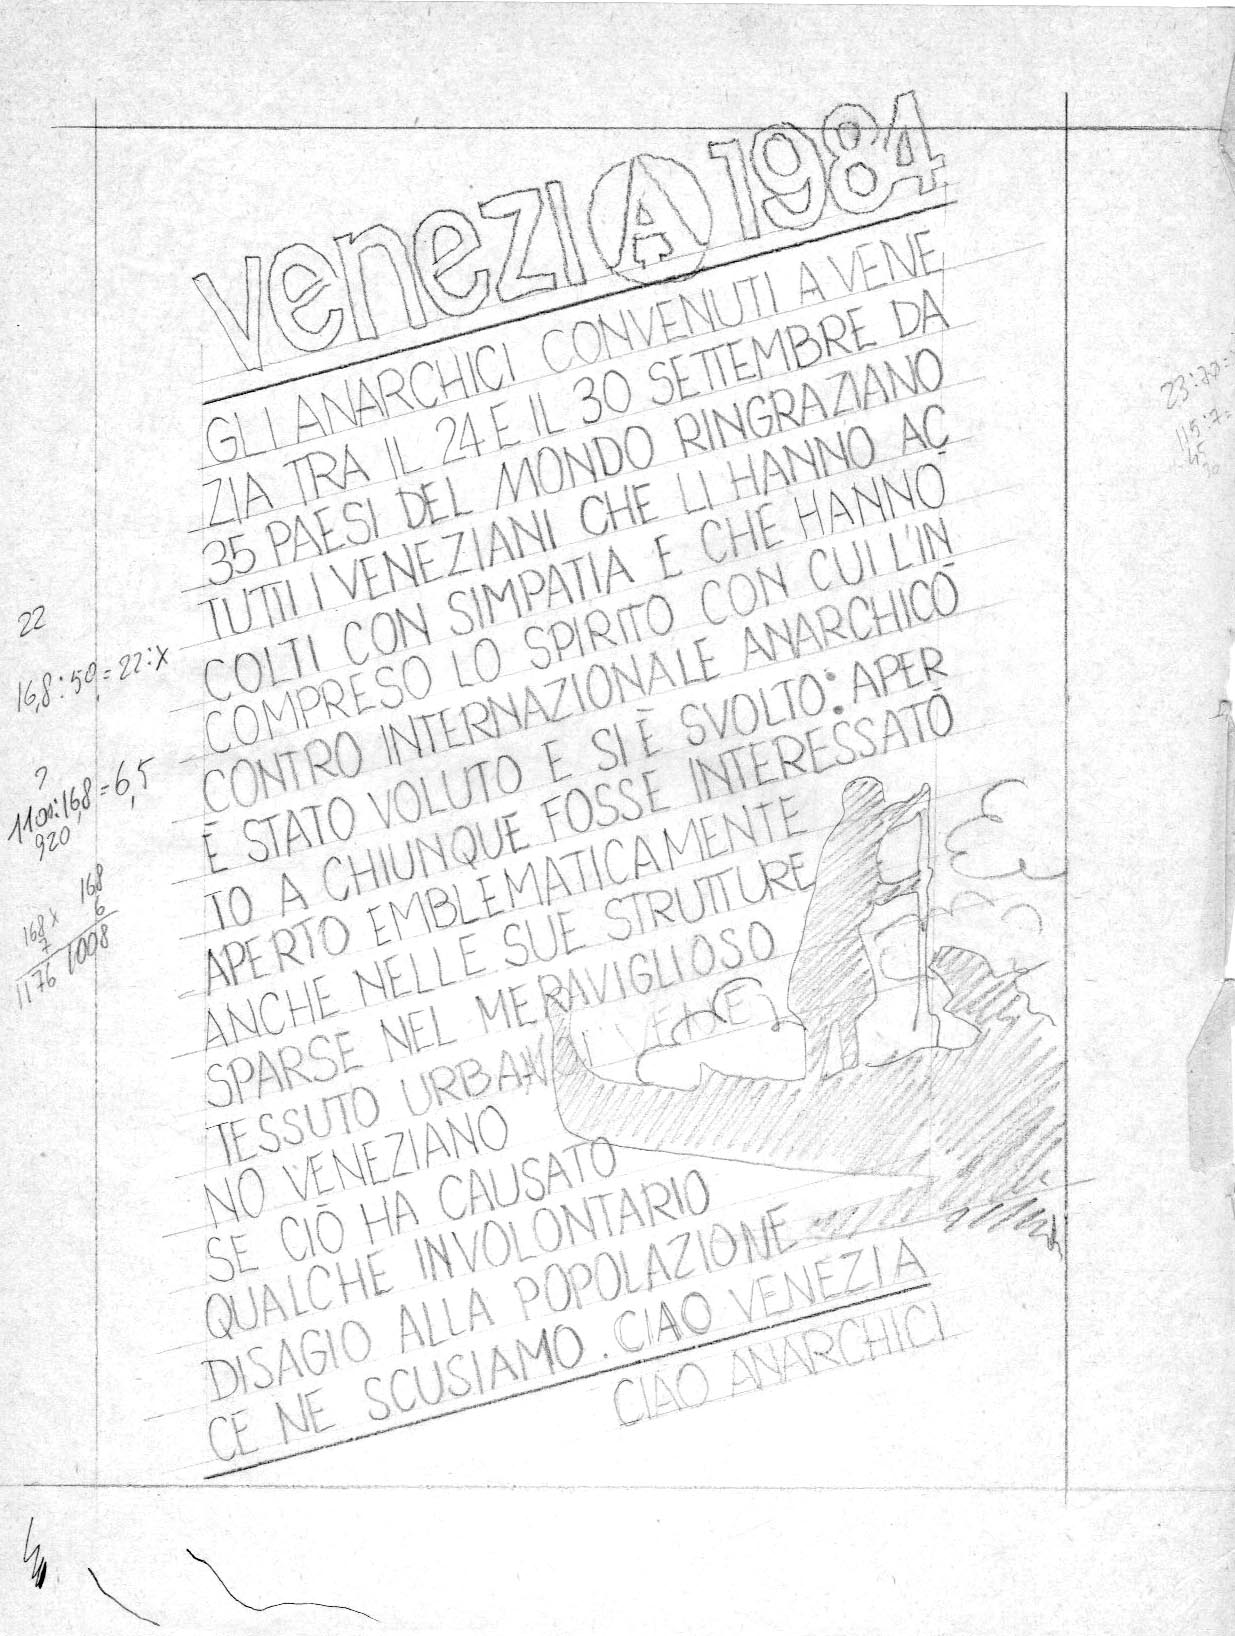 VENEZIA 1984
GLI ANARCHICI CONVENUTI A VENE
ZIA TRA IL 24 E IL 30 SETTEMBRE DA
35 PAESI DEL MONDO RINGRAZIANO
TUTTI I VENEZIANI CHE LI HANNO AC
COLTI CON SIMPATIA E CHE HANNO
COMPRESO LO SPIRITO CON CUI L'IN
CONTRO INTERNAZIONALE ANARCHICO
È STATO VOLUTO E SI È SVOLTO: APER
TO A CHIUNQUE FOSSE INTERESSATO
APERTO EMBLEMATICAMENTE
ANCHE NELLE SUE STRUTTURE
SPARSE NEL MERAVIGLIOSO
TESSUTO URBAN
NO VENEZIANO
SE CIÒ HA CAUSATO
QUALCHE INVOLONTARIO
DISAGIO ALLA POPOLAZIONE
CE NE SCUSIAMO. CIAO VENEZIA
CIAO ANARCHICI
22
16,8:50=22:x
?
1100:16,8=6,5
920
168
6
1008
168x
7
1176
115:7=
45